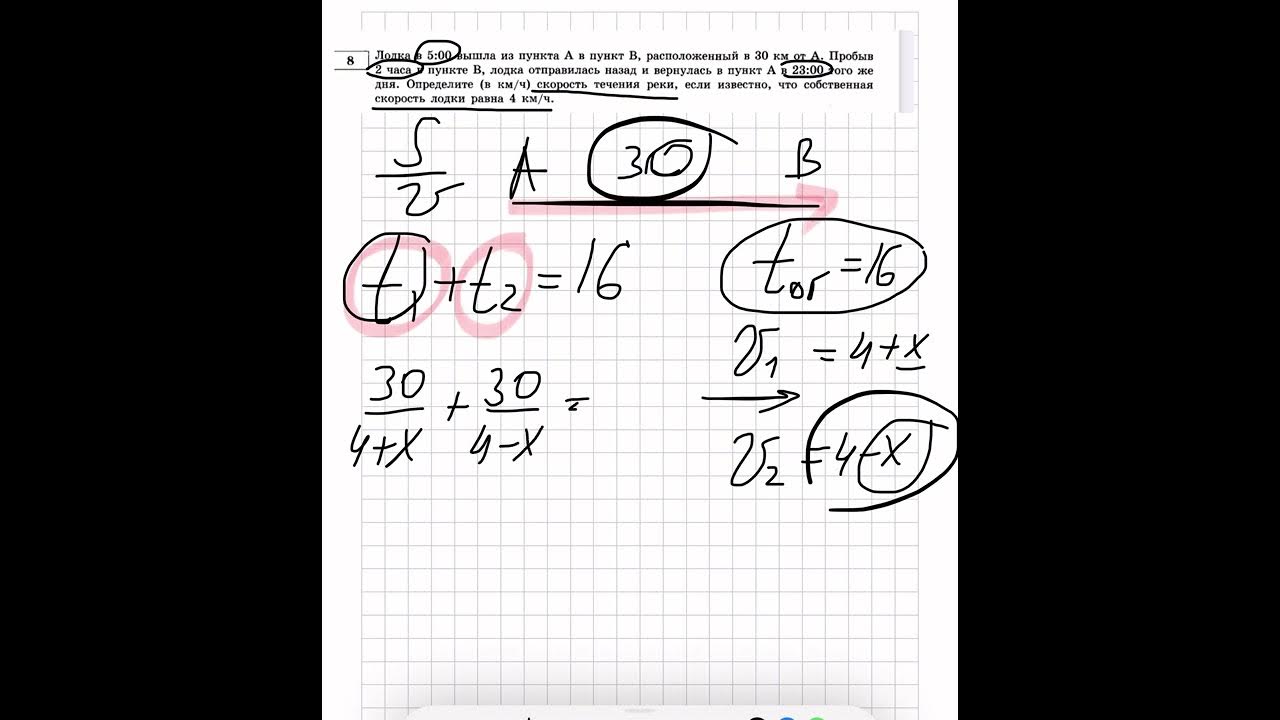 8
Лодка в 5:00 вышла из пункта А в пункт В, расположенный в 30 км от А. Пробыв
2 часа в пункте В, лодка отправилась назад и вернулась в пункт А в 23:00 того же
дня. Определите (в км/ч) скорость течения реки, если известно, что собственная
скорость лодки равна 4 км/ч.
S/v
A 30 B
t₁ + t₂ = 16
t₀₅ = 16
v₁ = 4+x
30/(4+x) + 30/(4-x) =
v₂ = 4-x